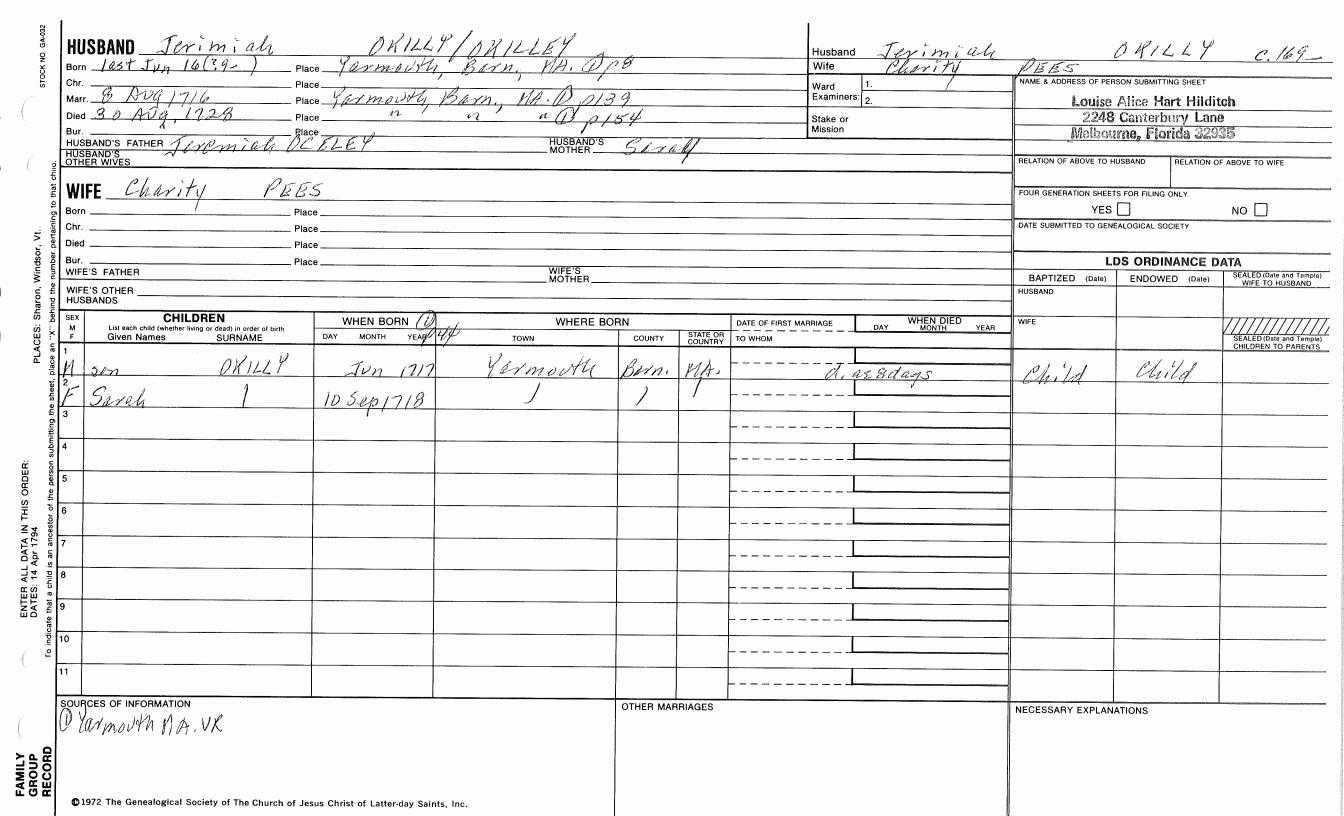 STOCK NO. GA-032
HUSBAND Jerimiah OKILLY/OKILLEY
Born last Jun 16(?9- ) Place Yarmouth, Barn., MA. ① p8
Chr. Place
Marr. 8 AUG 1716 Place Yarmouth, Barn, MA. ① p139
Died 30 AUG, 1728 Place " " " ① p154
Bur. Place
HUSBAND'S FATHER Jeremiah OCELEY HUSBAND'S MOTHER Sarah
HUSBAND'S OTHER WIVES
Husband Jerimiah OKILLY c.169-
Wife Charity PEES
Ward Examiners: 1.
2.
Stake or Mission
NAME & ADDRESS OF PERSON SUBMITTING SHEET
Louise Alice Hart Hilditch
2248 Canterbury Lane
Melbourne, Florida 32935
RELATION OF ABOVE TO HUSBAND RELATION OF ABOVE TO WIFE
FOUR GENERATION SHEETS FOR FILING ONLY
YES NO
DATE SUBMITTED TO GENEALOGICAL SOCIETY
WIFE Charity PEES
Born Place
Chr. Place
Died Place
Bur. Place
WIFE'S FATHER WIFE'S MOTHER
WIFE'S OTHER HUSBANDS
LDS ORDINANCE DATA
BAPTIZED (Date) ENDOWED (Date) SEALED (Date and Temple) WIFE TO HUSBAND
HUSBAND
WIFE
SEALED (Date and Temple) CHILDREN TO PARENTS
SEX M F
CHILDREN
List each child (whether living or dead) in order of birth
Given Names SURNAME
WHEN BORN ① p44
DAY MONTH YEAR
WHERE BORN
TOWN COUNTY STATE OR COUNTRY
DATE OF FIRST MARRIAGE
TO WHOM
WHEN DIED
DAY MONTH YEAR
1 M son OKILLY Jun 1717 Yarmouth Barn. MA. d. ae 8 days Child Child
2 F Sarah 10 Sep 1718
3
4
5
6
7
8
9
10
11
SOURCES OF INFORMATION
① Yarmouth MA. VR
OTHER MARRIAGES
NECESSARY EXPLANATIONS
©1972 The Genealogical Society of The Church of Jesus Christ of Latter-day Saints, Inc.
FAMILY GROUP RECORD
ENTER ALL DATA IN THIS ORDER:
DATES: 14 Apr 1794
PLACES: Sharon, Windsor, Vt.
To indicate that a child is an ancestor of the person submitting the sheet, place an "X" behind the number pertaining to that child.